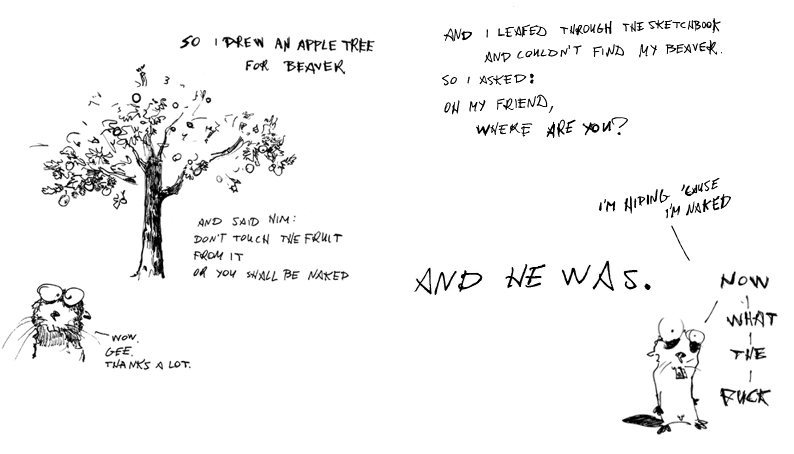 SO I DREW AN APPLE TREE
FOR BEAVER
AND SAID HIM:
DON'T TOUCH THE FRUIT
FROM IT
OR YOU SHALL BE NAKED
WOW.
GEE.
THANKS A LOT.
AND I LEAFED THROUGH THE SKETCHBOOK
AND COULDN'T FIND MY BEAVER.
SO I ASKED:
OH MY FRIEND,
WHERE ARE YOU?
I'M HIDING 'CAUSE
I'M NAKED
AND HE WAS.
NOW
WHAT
THE
FUCK